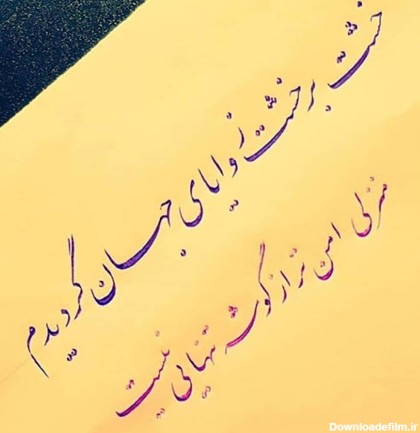 خشت بر خشت زوایای جهان گردیدم
منزلی امن تر از گوشه تنهایی نیست
Downloadefilm.ir